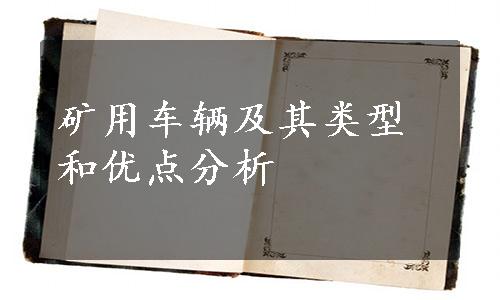 矿用车辆及其类型
和优点分析